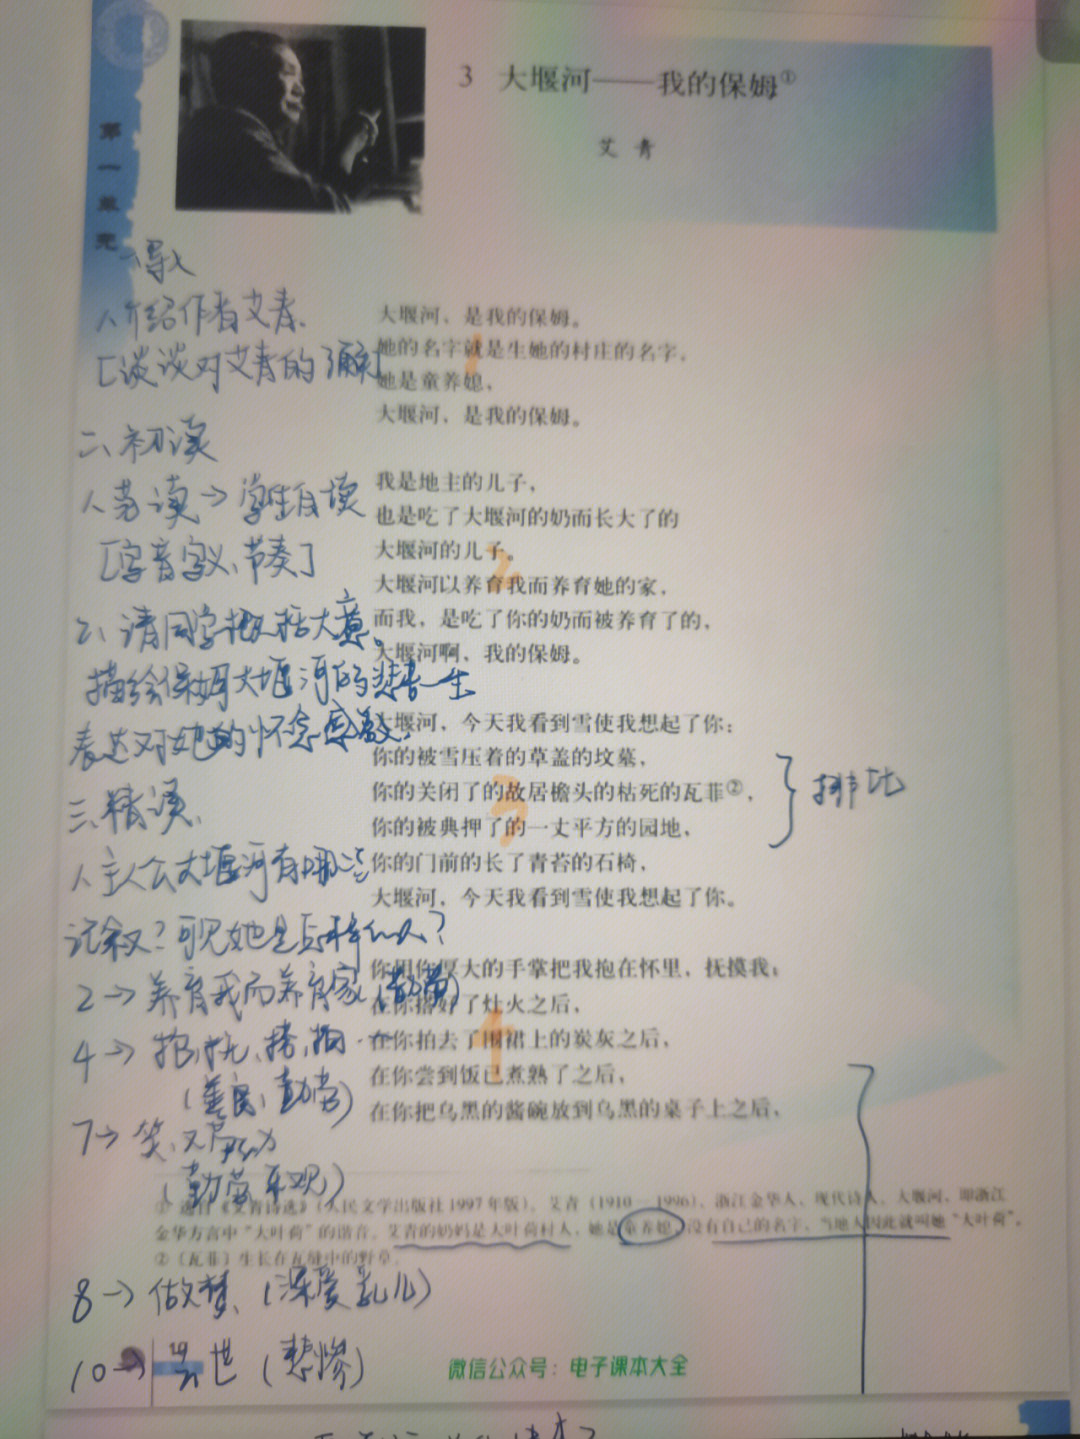 第一单元
3 大堰河——我的保姆①
艾青
一、导入
1、介绍作者艾青.
[谈谈对艾青的了解]
二、初读
1、范读→学生自读
[字音字义、节奏]
2、请同学概括大意。
描绘保姆大堰河的悲苦一生
表达对她的怀念感激.
三、精读、
1、主人公大堰河有哪些
记叙?可见她是怎样的人?
2→养育我而养育家(勤劳)
4→抱、抚、搭、拍…
(善良、勤劳)
7→笑、又劳动
(勤劳乐观)
8→做梦、(深爱乳儿)
10→去世(悲惨)
大堰河,是我的保姆。
她的名字就是生她的村庄的名字,
她是童养媳,
大堰河,是我的保姆。
1
我是地主的儿子,
也是吃了大堰河的奶而长大了的
大堰河的儿子。
大堰河以养育我而养育她的家,
而我,是吃了你的奶而被养育了的,
大堰河啊,我的保姆。
2
大堰河,今天我看到雪使我想起了你:
你的被雪压着的草盖的坟墓,
你的关闭了的故居檐头的枯死的瓦菲②,
你的被典押了的一丈平方的园地,
你的门前的长了青苔的石椅,
大堰河,今天我看到雪使我想起了你。
3
排比
你用你厚大的手掌把我抱在怀里,抚摸我;
在你搭好了灶火之后,
在你拍去了围裙上的炭灰之后,
在你尝到饭已煮熟了之后,
在你把乌黑的酱碗放到乌黑的桌子上之后,
4
① 选自《艾青诗选》(人民文学出版社1997年版)。艾青(1910—1996),浙江金华人,现代诗人。大堰河,即浙江
金华方言中“大叶荷”的谐音。艾青的奶妈是大叶荷村人,她是童养媳,没有自己的名字,当地人因此就叫她“大叶荷”。
②〔瓦菲〕生长在瓦缝中的野草。
微信公众号:电子课本大全